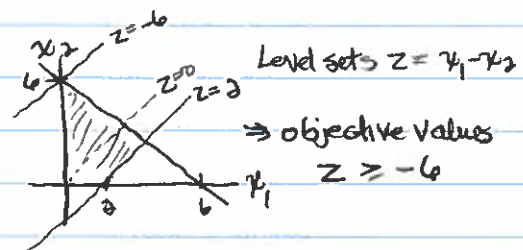 x₂
z=-6
6
z=0
z=2
2
6
x₁
Level sets z = x₁-x₂
⇒ objective values
z ≥ -6